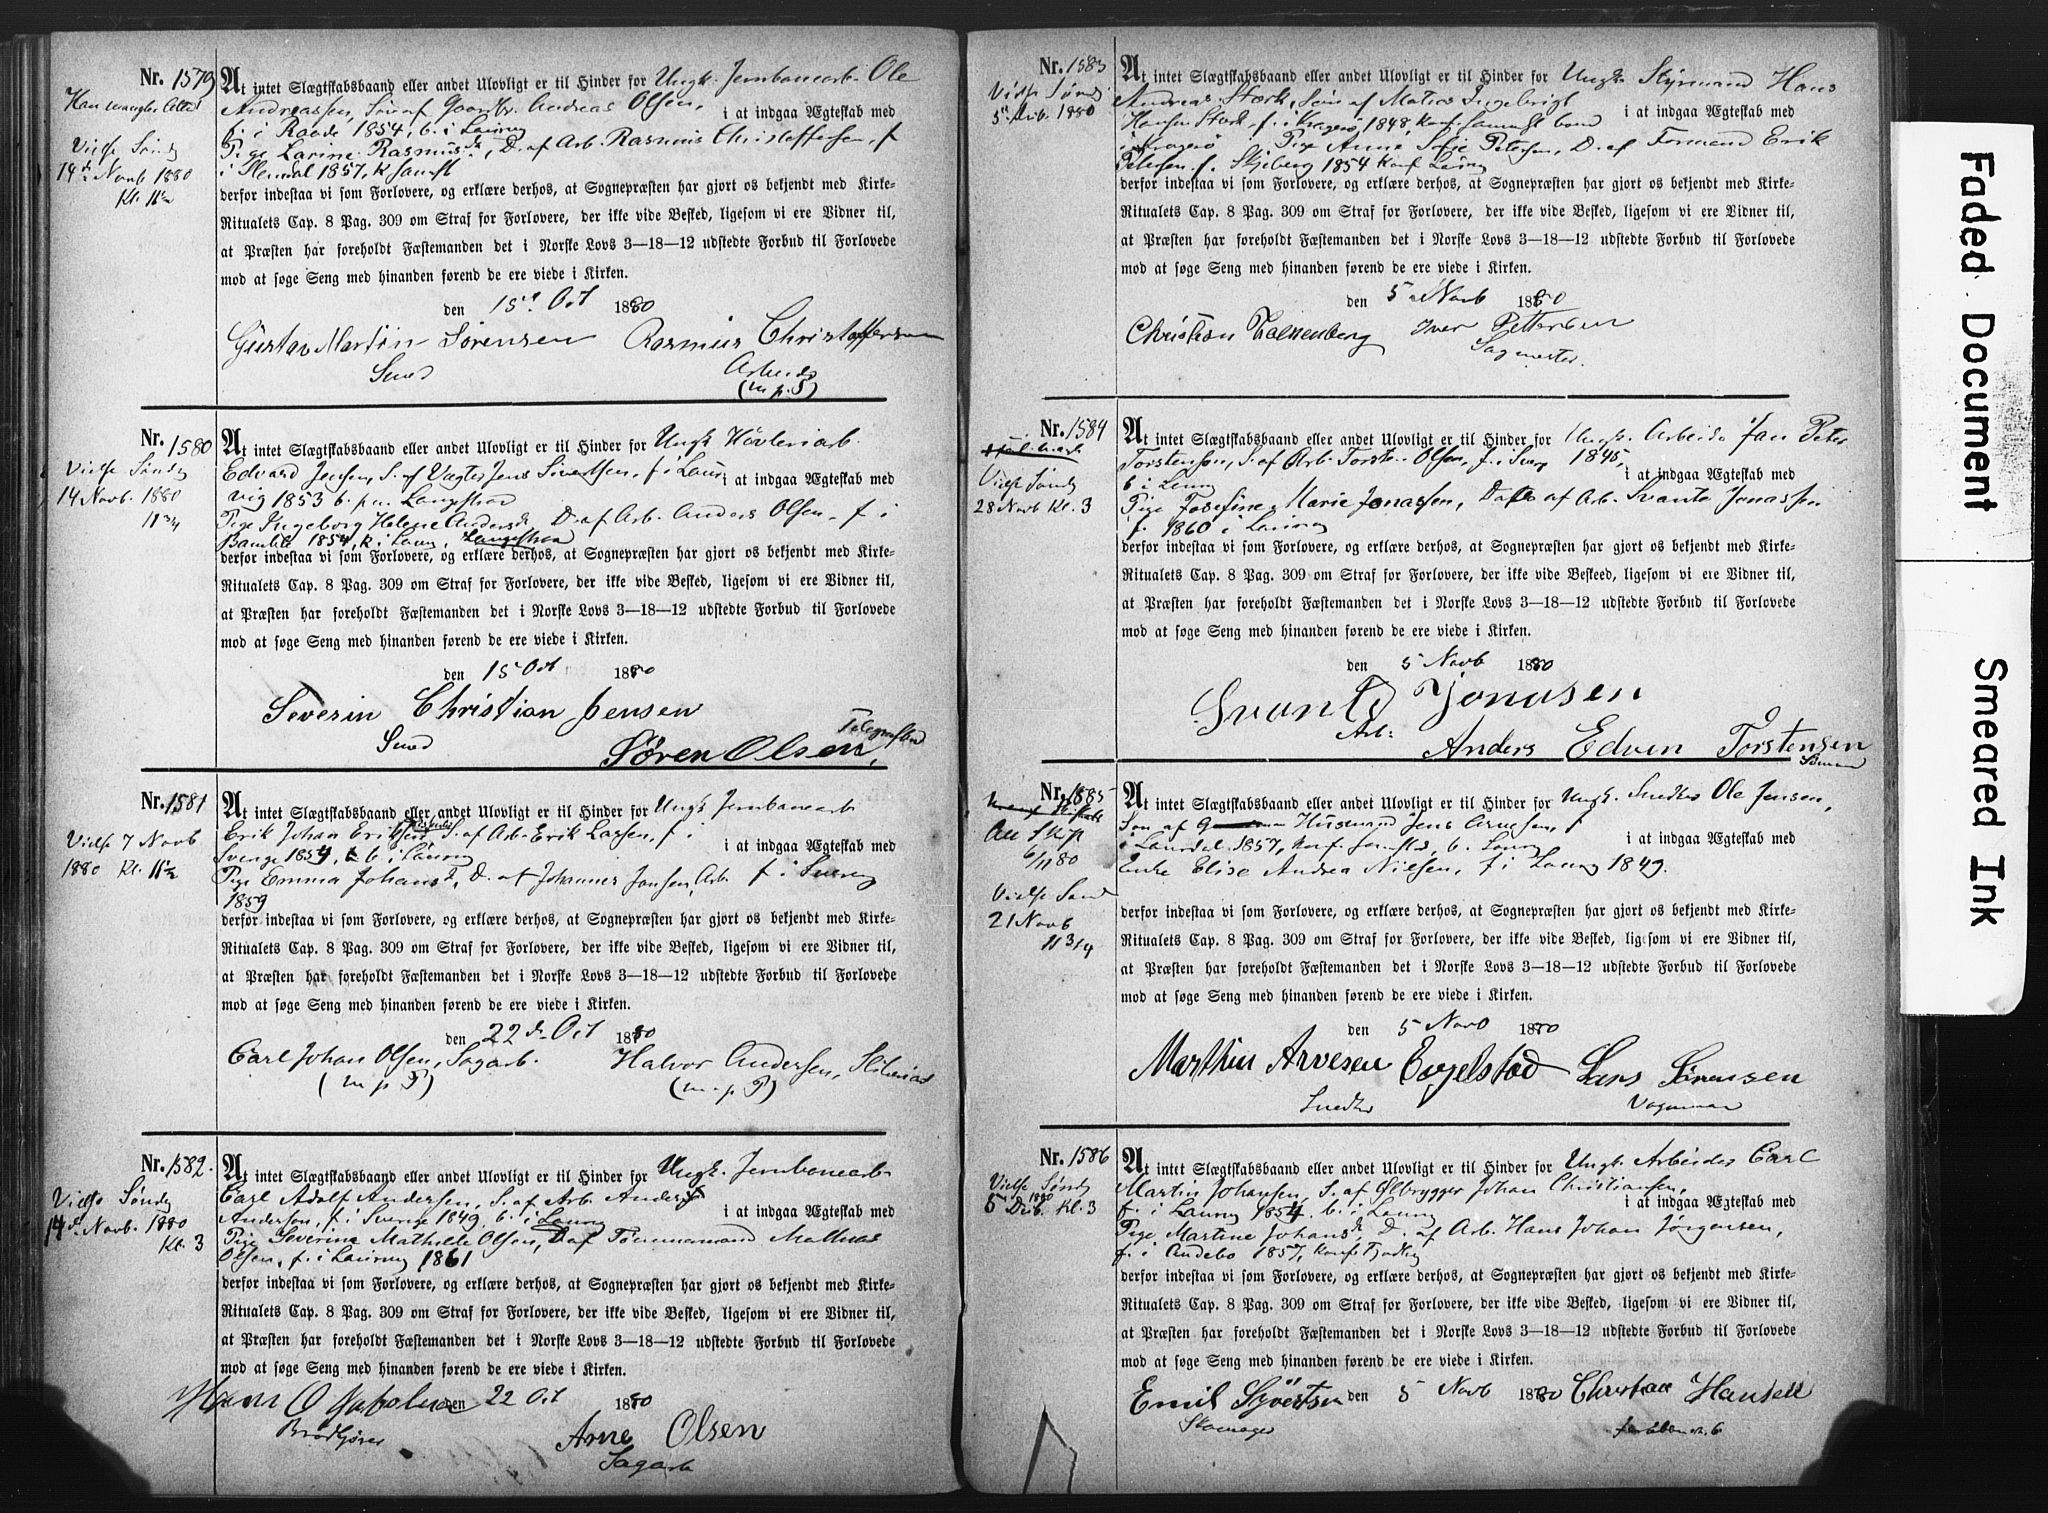 Nr. 1579
Vielse Søndg
14de Novb 1880
Kl. 11½
At intet Slægtskabsbaand eller andet Ulovligt er til Hinder for Ungk. Jernbanearb. Ole
Andreassen, Søn af Gaardbr. Andreas Olsen,
i at indgaa Ægteskab med
f. i Raade 1854, b. i Laurvig
Pige Larine Rasmusd., D. af Arb. Rasmus Christoffersen, f
i Slemdal 1857, k samst
derfor indestaa vi som Forlovere, og erklære derhos, at Sognepræsten har gjort os bekjendt med Kirke-
Ritualets Cap. 8 Pag. 309 om Straf for Forlovere, der ikke vide Besked, ligesom vi ere Vidner til,
at Præsten har foreholdt Fæstemanden det i Norske Lovs 3—18—12 udstedte Forbud til Forlovede
mod at søge Seng med hinanden førend de ere viede i Kirken.
den 15de Oct 1880
Gustav Martin Sørensen Rasmus Christoffersen
Smed Arbeids
(m. p. S)
Nr. 1580
Vielse Søndg
14 Novb. 1880
11 3/4
At intet Slægtskabsbaand eller andet Ulovligt er til Hinder for Ungk Høvleriarb.
Edvard Jensen, S. af Vægter Jens Sivertsen, f. i Laur
i at indgaa Ægteskab med
vig 1853 b. pa. Langestrand
Pige Ingeborg Helene Andersd., D. af Arb. Anders Olsen, f. i
Bamble 1854, k i Laurv, Langestran
derfor indestaa vi som Forlovere, og erklære derhos, at Sognepræsten har gjort os bekjendt med Kirke-
Ritualets Cap. 8 Pag. 309 om Straf for Forlovere, der ikke vide Besked, ligesom vi ere Vidner til,
at Præsten har foreholdt Fæstemanden det i Norske Lovs 3—18—12 udstedte Forbud til Forlovede
mod at søge Seng med hinanden førend de ere viede i Kirken.
den 15 Oct 1880
Severin Christian Jensen
Smed
Søren Olsen,
Nr. 1581
Vielse 7 Novb
1880 Kl. 11½
At intet Slægtskabsbaand eller andet Ulovligt er til Hinder for Ungk Jernbanearb
Erik Johan Eriksen S. af Arb. Erik Larsen, f. i
i at indgaa Ægteskab med
Sverge 1854, b. i Laurvig
Pige Emma Johansd, D. af Johannes Jansen, Arb. f. i Sverig
1859
derfor indestaa vi som Forlovere, og erklære derhos, at Sognepræsten har gjort os bekjendt med Kirke-
Ritualets Cap. 8 Pag. 309 om Straf for Forlovere, der ikke vide Besked, ligesom vi ere Vidner til,
at Præsten har foreholdt Fæstemanden det i Norske Lovs 3—18—12 udstedte Forbud til Forlovede
mod at søge Seng med hinanden førend de ere viede i Kirken.
den 22de Oct 1880
Carl Johan Olsen, Sagarb. Halvor Andersen,
(m p P) (m. p. P)
Nr. 1582.
Vielse Søndg
14de Novb. 1880
Kl. 3
At intet Slægtskabsbaand eller andet Ulovligt er til Hinder for Ungk. Jernbanearb.
Carl Adolf Andersen, S. af Arb Anders
i at indgaa Ægteskab med
Andersen, f. i Sverige 1849, b. i Laurvig
Pige Severine Mathilde Olsen, D. af Tømmermand Mathias
Olsen, f. i Laurvig 1861
derfor indestaa vi som Forlovere, og erklære derhos, at Sognepræsten har gjort os bekjendt med Kirke-
Ritualets Cap. 8 Pag. 309 om Straf for Forlovere, der ikke vide Besked, ligesom vi ere Vidner til,
at Præsten har foreholdt Fæstemanden det i Norske Lovs 3—18—12 udstedte Forbud til Forlovede
mod at søge Seng med hinanden førend de ere viede i Kirken.
den 22 Oct 1880
Arne Olsen
Sagarb
Nr. 1583
Vielse Søndg
5te Dcb. 1880
At intet Slægtskabsbaand eller andet Ulovligt er til Hinder for Ungk. Styrmand Hans
Andreas Stork, Søn af Matias Ingebrigt
i at indgaa Ægteskab med
Hansen Stork, f. i Kragerø 1848, konf. samst boend
i Kragerø Pige Anne Sofie Petersen, D. af Formand Erik
Petersen, f. Skjeberg 1854 konf Laurvig
derfor indestaa vi som Forlovere, og erklære derhos, at Sognepræsten har gjort os bekjendt med Kirke-
Ritualets Cap. 8 Pag. 309 om Straf for Forlovere, der ikke vide Besked, ligesom vi ere Vidner til,
at Præsten har foreholdt Fæstemanden det i Norske Lovs 3—18—12 udstedte Forbud til Forlovede
mod at søge Seng med hinanden førend de ere viede i Kirken.
den 5 Novb 1880
Christian Falkenberg Iver Pettersen
Sagmester.
Nr. 1584
Vielse Søndg
28 Novb Kl. 3
At intet Slægtskabsbaand eller andet Ulovligt er til Hinder for Ungk. Arbeids Jan Peter
Torstensen, S. af Arb. Torsten Olsen, f. i Sverg 1845,
i at indgaa Ægteskab med
b i Laurvg
Pige Josefine Marie Jonassen, Datter af Arb. Svante Jonassen
f. 1860 i Laurvig
derfor indestaa vi som Forlovere, og erklære derhos, at Sognepræsten har gjort os bekjendt med Kirke-
Ritualets Cap. 8 Pag. 309 om Straf for Forlovere, der ikke vide Beskeed, ligesom vi ere Vidner til,
at Præsten har foreholdt Fæstemanden det i Norske Lovs 3—18—12 udstedte Forbud til Forlovede
mod at søge Seng med hinanden førend de ere viede i Kirken.
den 5 Novb 1880
Svante Jonasen
Arb:
Anders Edvin Torstensen
Nr. 1585
Att Skift
6/11 80
Vielse Sønd
21 Novb
11 3/4
At intet Slægtskabsbaand eller andet Ulovligt er til Hinder for Ungk. Snedker Ole Jensen,
Søn af Husmand Jens Arnesen, f
i at indgaa Ægteskab med
i Laurdal 1857, konf. samsted, b. Laurvig
Enke Elise Andrea Nielsen, f. i Laurvig 1849.
derfor indestaa vi som Forlovere, og erklære derhos, at Sognepræsten har gjort os bekjendt med Kirke-
Ritualets Cap. 8 Pag. 309 om Straf for Forlovere, der ikke vide Besked, ligesom vi ere Vidner til,
at Præsten har foreholdt Fæstemanden det i Norske Lovs 3—18—12 udstedte Forbud til Forlovede
mod at søge Seng med hinanden førend de ere viede i Kirken.
den 5 Novb 1880
Marthin Arvesen Engelstad Lars Sørensen
Snedker Vognmand
Nr. 1586
Vielse Søndg
5 Dcb. 1880 Kl. 3
At intet Slægtskabsbaand eller andet Ulovligt er til Hinder for Ungk. Arbeider Carl
Martin Johansen, S. af Ølbrygger Johan Christiansen,
i at indgaa Ægteskab med
f. i Laurvig 1854. b. i Laurvig
Pige Martine Johansd., D. af Arb. Hans Johan Jørgensen,
f. i Andebo 1857, konf. Tjødling
derfor indestaa vi som Forlovere, og erklære derhos, at Sognepræsten har gjort os bekjendt med Kirke-
Ritualets Cap. 8 Pag. 309 om Straf for Forlovere, der ikke vide Besked, ligesom vi ere Vidner til,
at Præsten har foreholdt Fæstemanden det i Norske Lovs 3—18—12 udstedte Forbud til Forlovede
mod at søge Seng med hinanden førend de ere viede i Kirken.
Emil Syvertsen den 5 Novb 1880 Christian Hansen
Skomager
Faded Document
Smeared Ink